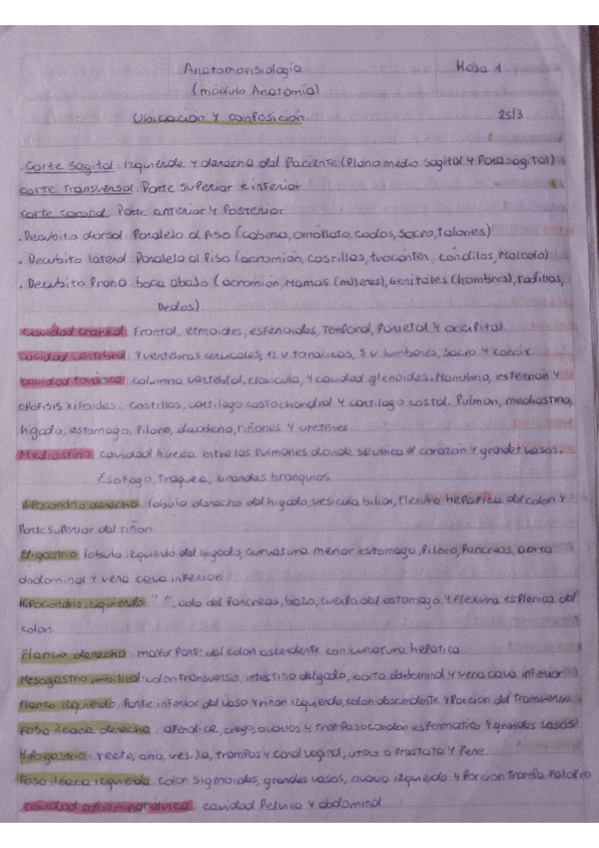 Anatomofisiología Hoja 1
(módulo Anatomía)
Ubicación y composición 25/3
. Corte sagital: Izquierda y derecha del paciente (Plano medio sagital y Parasagital)
Corte transversal: Parte superior e inferior
Corte coronal: Parte anterior y Posterior
. Decubito dorsal: Paralelo al Piso (cabeza, omóplato, codos, sacro, talones)
. Decubito lateral: Paralelo al Piso (acromion, costillas, trocanter, cóndilos, Maleolo)
. Decubito Prono: boca abajo (acromion, Mamas (mujeres), Genitales (hombres), rodillas,
Dedos).
Cavidad craneal: Frontal, etmoides, esfenoides, Temporal, Parietal y occipital.
Cavidad vertebral: 7 vertebras cervicales, 12 v toracicas, 5 v lumbares, sacro y coxix
Cavidad toráxica: columna vertebral, clavicula, y cavidad glenoidea. Manubrio, esternon y
apofisis xifoides. Costillas, cartilago costochondral y cartilago costal. Pulmon, mediastino,
higado, estomago, Piloro, duodeno, riñones y ureteres
Mediastino: cavidad hueca entre los Pulmones donde se ubica el corazón y grandes vasos.
Esofago, Traquea, Grandes bronquios.
Hipocondrio derecho: lobulo derecho del higado, vesicula biliar, Flexura hepatica del colon y
Parte superior del riñon.
Epigastrio: lobulo izquierdo del higado, curvatura menor estomago, Piloro, Pancreas, aorta
abdominal y vena cava inferior
Hipocondrio izquierdo: " ", cola del Pancreas, bazo, cuerpo del estomago y Flexura esplenica del
colon.
Flanco derecho: mayor Parte del colon ascendente con curvatura hepatica
Mesogastrio umbilical: colon transverso, intestino delgado, aorta abdominal y vena cava inferior
Flanco izquierdo: Parte inferior del vaso y riñon izquierdo, colon descendente y Porcion del transverso.
Fosa ileaca derecha: apendice, ciego, ovarios y trompas cordon espermatico y grandes vasos
Hipogastrio: recto, ano, vejija, trompas y canal vaginal, utero o Prostata y Pene.
Fosa ileaca izquierda: colon sigmoides, grandes vasos, ovario izquierdo y Porcion trompa Falopio
Cavidad abdominopélvica: cavidad Pelvica y abdominal